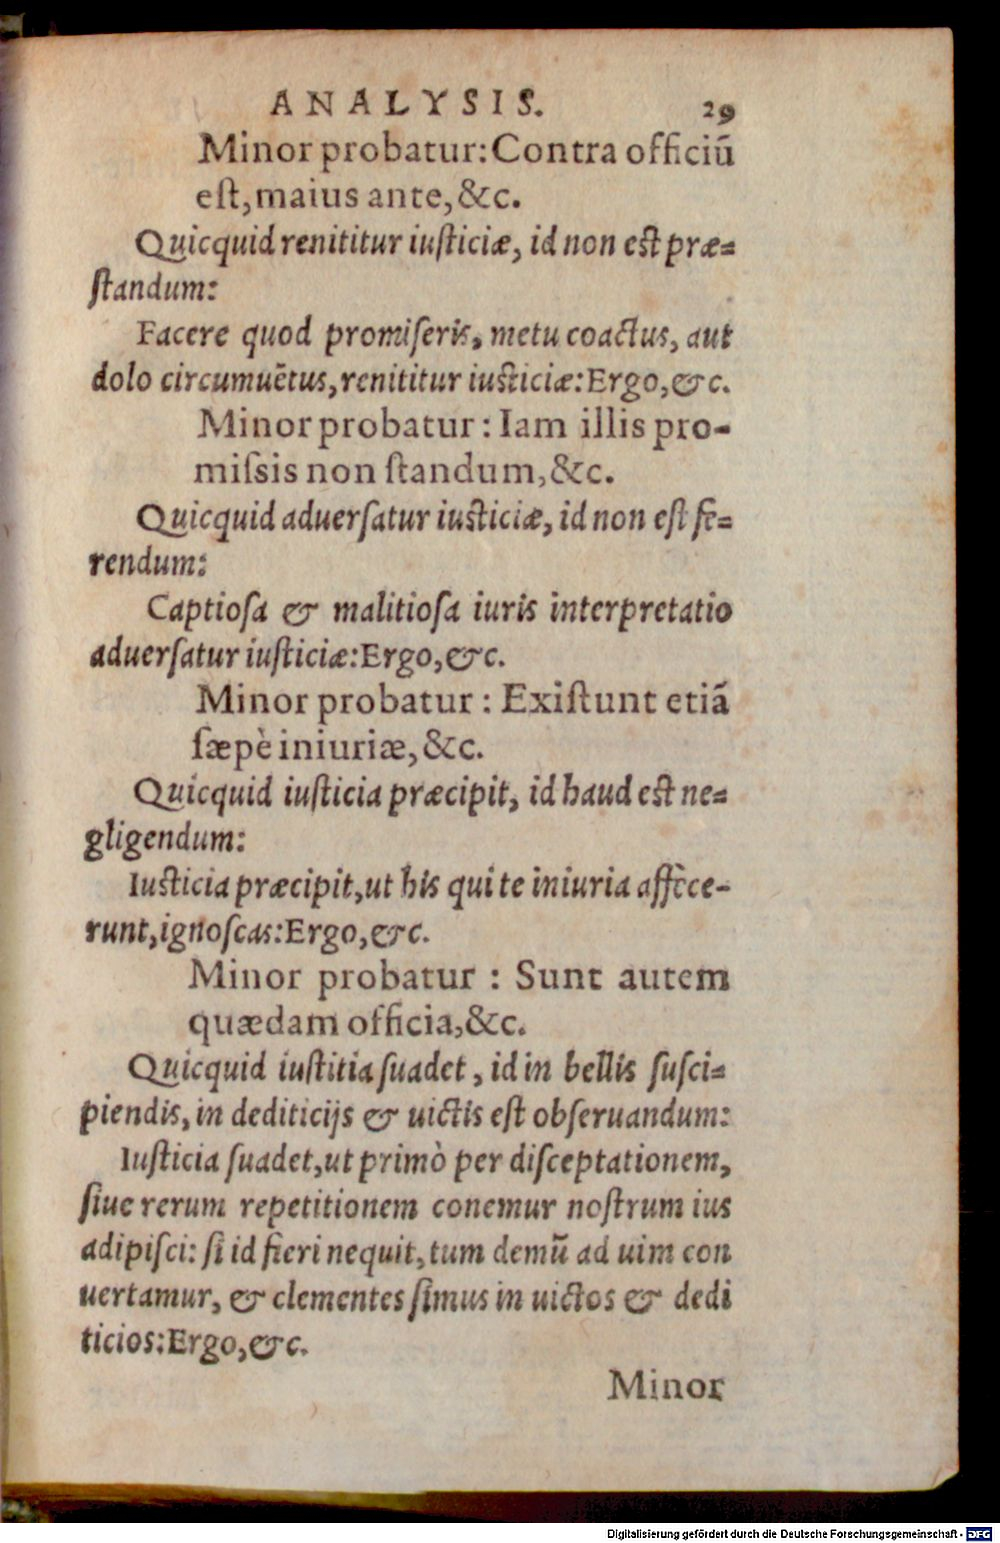 ANALYSIS. 29
Minor probatur: Contra officiũ
eſt, maius ante, &c.
Quicquid renititur iuſticiæ, id non est præ=
ſtandum:
Facere quod promiſeris, metu coactus, aut
dolo circumuẽtus, renititur iusticiæ: Ergo, &c.
Minor probatur: Iam illis pro-
miſsis non ſtandum, &c.
Quicquid aduerſatur iusticiæ, id non eſt fe=
rendum:
Captioſa & malitioſa iuris interpretatio
aduerſatur iuſticiæ: Ergo, &c.
Minor probatur: Exiſtunt etiã
ſæpè iniuriæ, &c.
Quicquid iuſticia præcipit, id haud est ne=
gligendum:
Iusticia præcipit, ut his qui te iniuria affece-
runt, ignoſcas: Ergo, &c.
Minor probatur: Sunt autem
quædam officia, &c.
Quicquid iuſtitia ſuadet, id in bellis ſuſci=
piendis, in dediticijs & uictis eſt obſeruandum:
Iuſticia ſuadet, ut primò per diſceptationem,
ſiue rerum repetitionem conemur noſtrum ius
adipiſci: ſi id fieri nequit, tum demũ ad uim con
uertamur, & clementes ſimus in uictos & dedi
ticios: Ergo, &c.
Minor
Digitalisierung gefördert durch die Deutsche Forschungsgemeinschaft - DFG